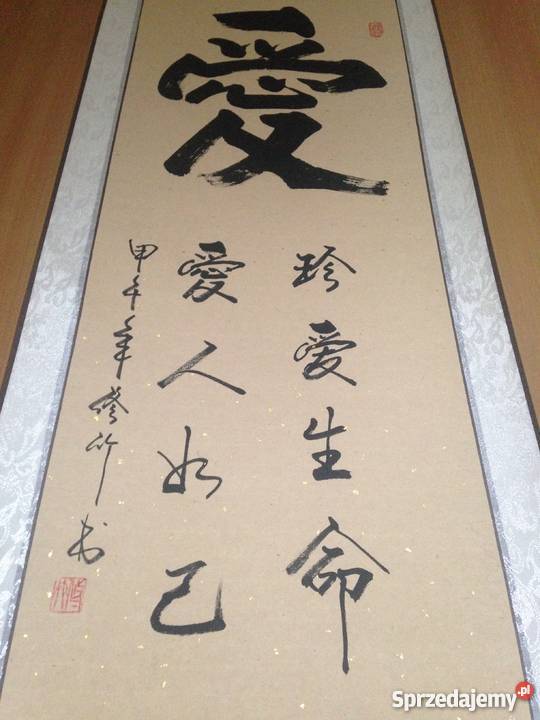 愛
珍愛生命
愛人如己
甲午年修竹书
Sprzedajemy.pl